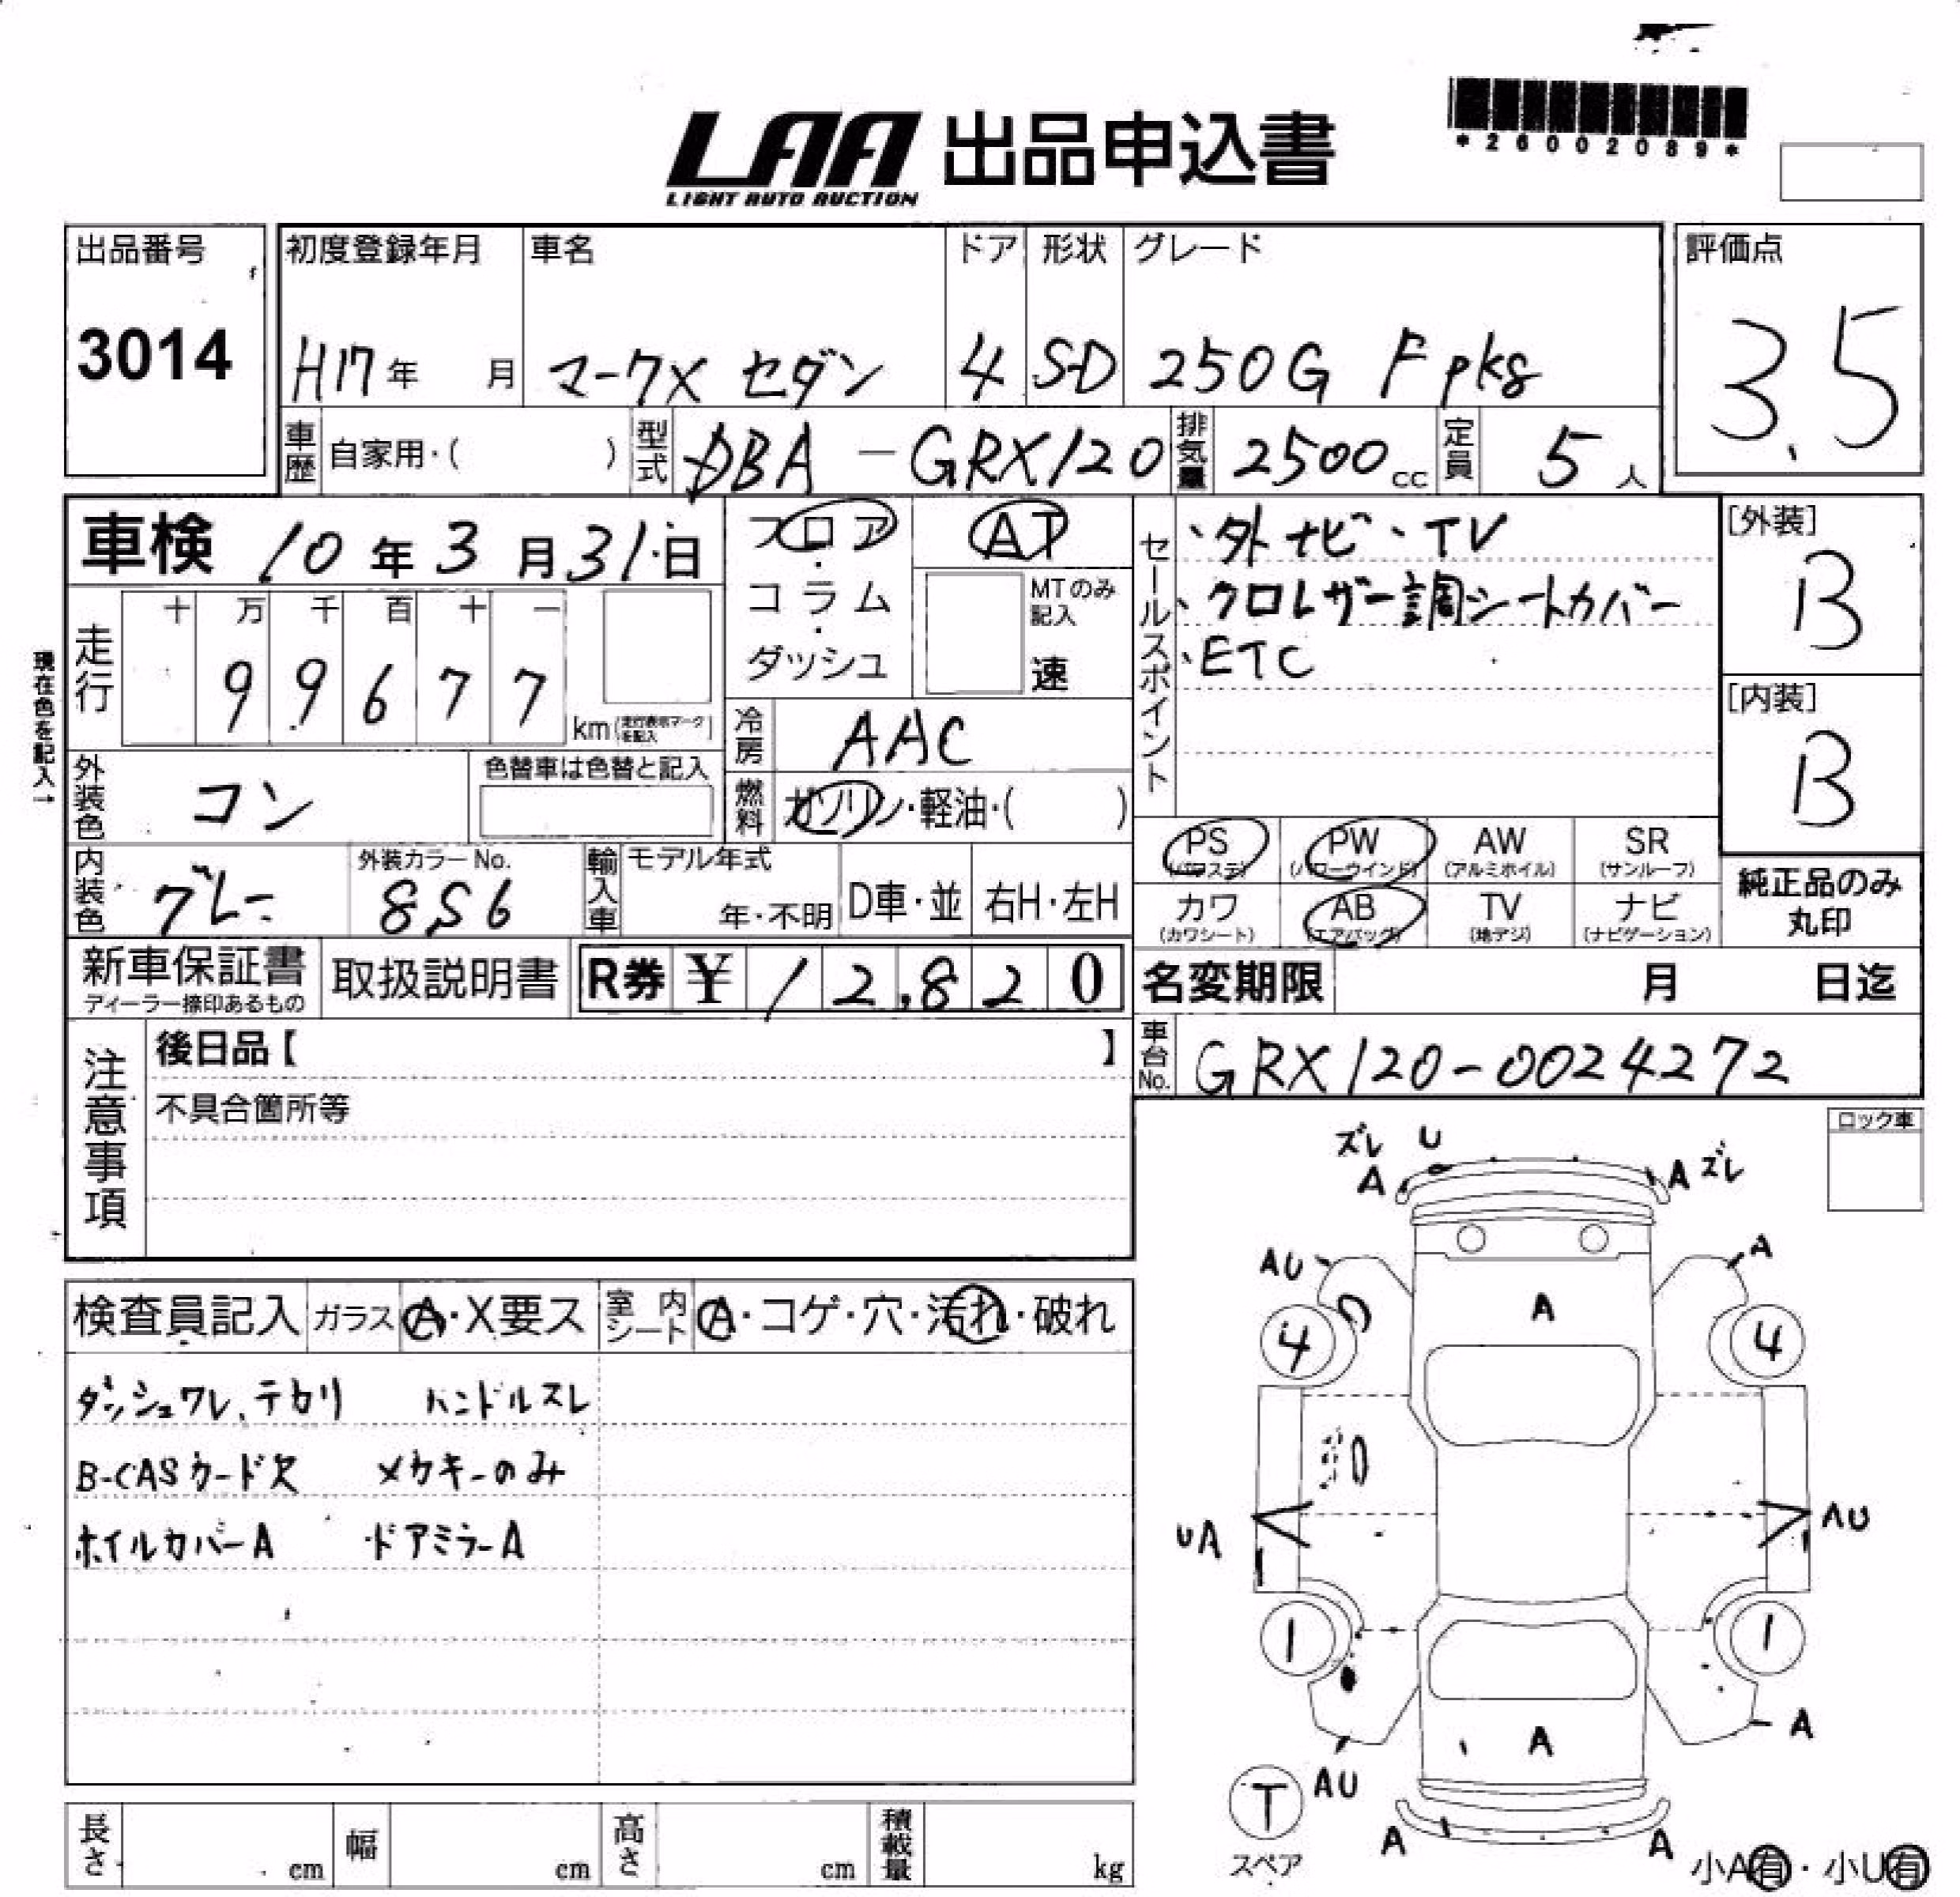 LAA 出品申込書
LIGHT AUTO AUCTION
*26002089*
出品番号
3014
初度登録年月
H17年 月
車名
マークX セダン
ドア
4
形状
SD
グレード
250G F pkg
評価点
3.5
車歴 自家用・( )
型式 DBA-GRX120
排気量 2500cc
定員 5人
車検 10年3月31日
フロア・コラム・ダッシュ
AT
MTのみ記入
速
セールスポイント
、外ナビ、TV
、クロレザー調シートカバー
、ETC
[外装]
B
[内装]
B
現在色を記入→
走行
十 万 千 百 十 一
9 9 6 7 7
km(走行表示マークを記入)
冷房 AAC
燃料 ガソリン・軽油・( )
外装色 コン
色替車は色替と記入
内装色 グレー
外装カラーNo.
8S6
輸入車 モデル年式
年・不明
D車・並
右H・左H
PS (パワステ)
PW (パワーウインド)
AW (アルミホイル)
SR (サンルーフ)
カワ (カワシート)
AB (エアバッグ)
TV (地デジ)
ナビ (ナビゲーション)
純正品のみ
丸印
新車保証書
ディーラー捺印あるもの
取扱説明書
R券 ¥ 12,820
名変期限 月 日迄
車台No. GRX120-0024272
注意事項
後日品【 】
不具合箇所等
ロック車
検査員記入 ガラス A・X要ス
室内シート A・コゲ・穴・汚れ・破れ
ダッシュワレ、テカリ ハンドルスレ
B-CASカード欠 メカキーのみ
ホイルカバーA ドアミラーA
ズレ U
A A ズレ
AU A
A
4 4
UA AU
1 1
A
A
AU
T
スペア
A A
小A有・小U有
長さ cm
幅 cm
高さ cm
積載量 kg